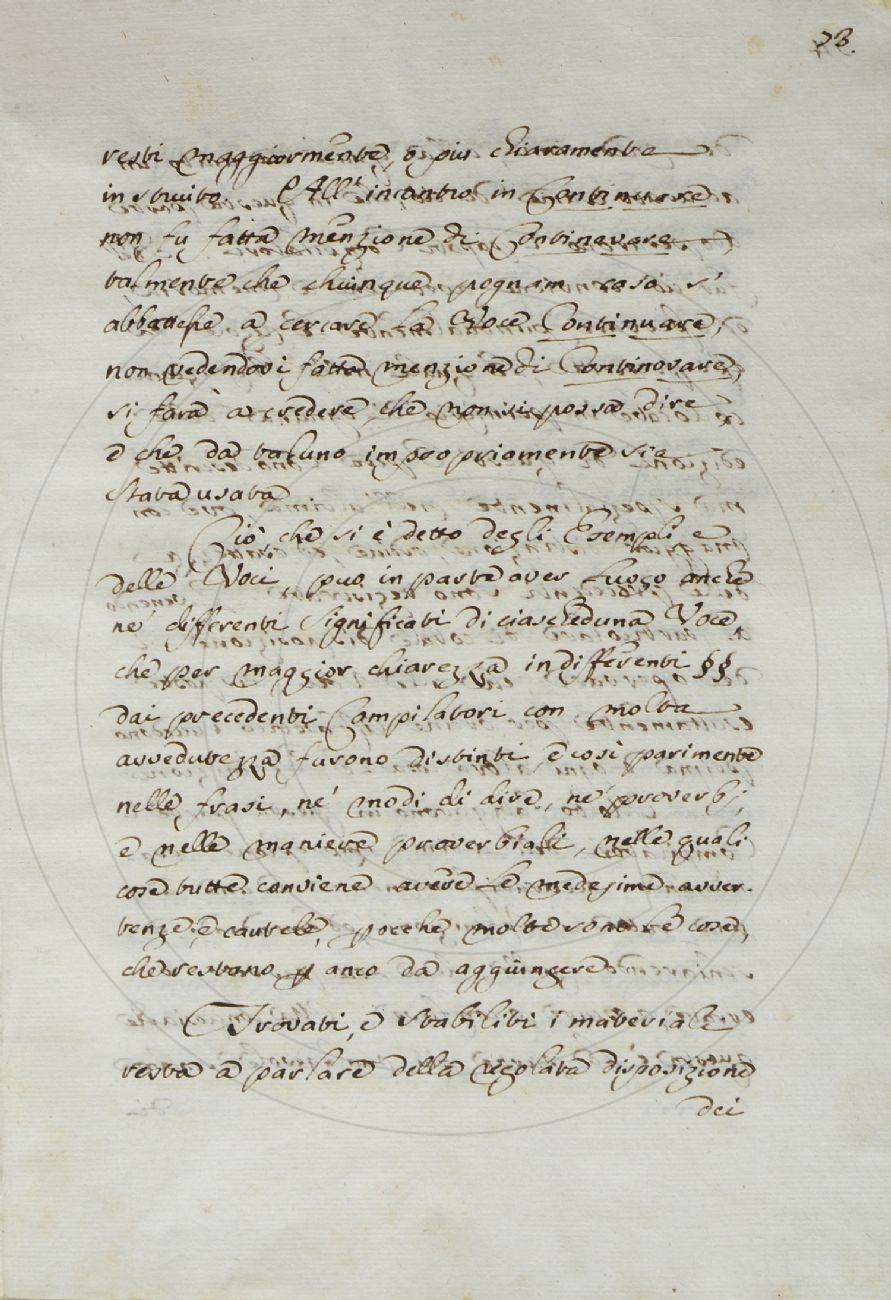 23.
resti maggiormente, e più chiaramente
instruito. All' incontro in Continuare
non fu fatta menzione di Continovare
talmente che chiunque pognam caso si
abbattesse a cercare la Voce Continuare,
non vedendovi fatta menzione di Continovare,
si farà a credere, che non si possa dire
e che da taluno impropriamente sia
stata usata.
Ciò, che si è detto degli Esempli e
delle Voci, può in parte aver luogo anche
ne' differenti significati di ciascheduna Voce,
che per maggior chiarezza in differenti §§
dai precedenti Compilatori con molta
avvedutezza furono distinti, e così parimente
nelle frasi, ne' modi di dire, ne' proverbj,
e nelle maniere proverbiali, nelle quali
cose tutte conviene avere le medesime avver-
tenze, e cautele, poiche molte sono le cose,
che restono anco da aggiungere
Trovati, e stabiliti i materiali
resta a parlare della regolata disposizione
dei